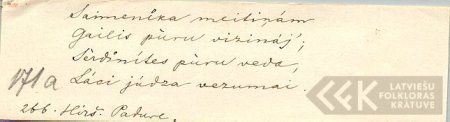 Saimenīka meitiņām
Gailis pūru vizināj';
Sērdinītes pūru veda,
Lāci jūdza vezumai.
171a
266. Hirš. Padure.
LATVIEŠU
FOLKLORAS
KRĀTUVE